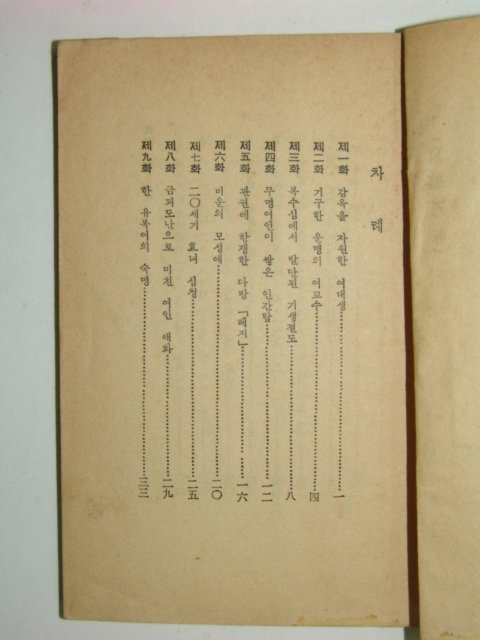 차례
제一화 감옥을 자원한 여대생……一
제二화 기구한 운명의 여교수……四
제三화 복수심에서 발단된 기생절도……八
제四화 무명여인이 쌓은 인간탑……一二
제五화 관권에 항쟁한 다방「레지」……一六
제六화 비운의 모성애……二〇
제七화 二〇세기 효녀 심청……二五
제八화 금괴도난으로 미친 여인 애화……二九
제九화 한 유복녀의 숙명……三三